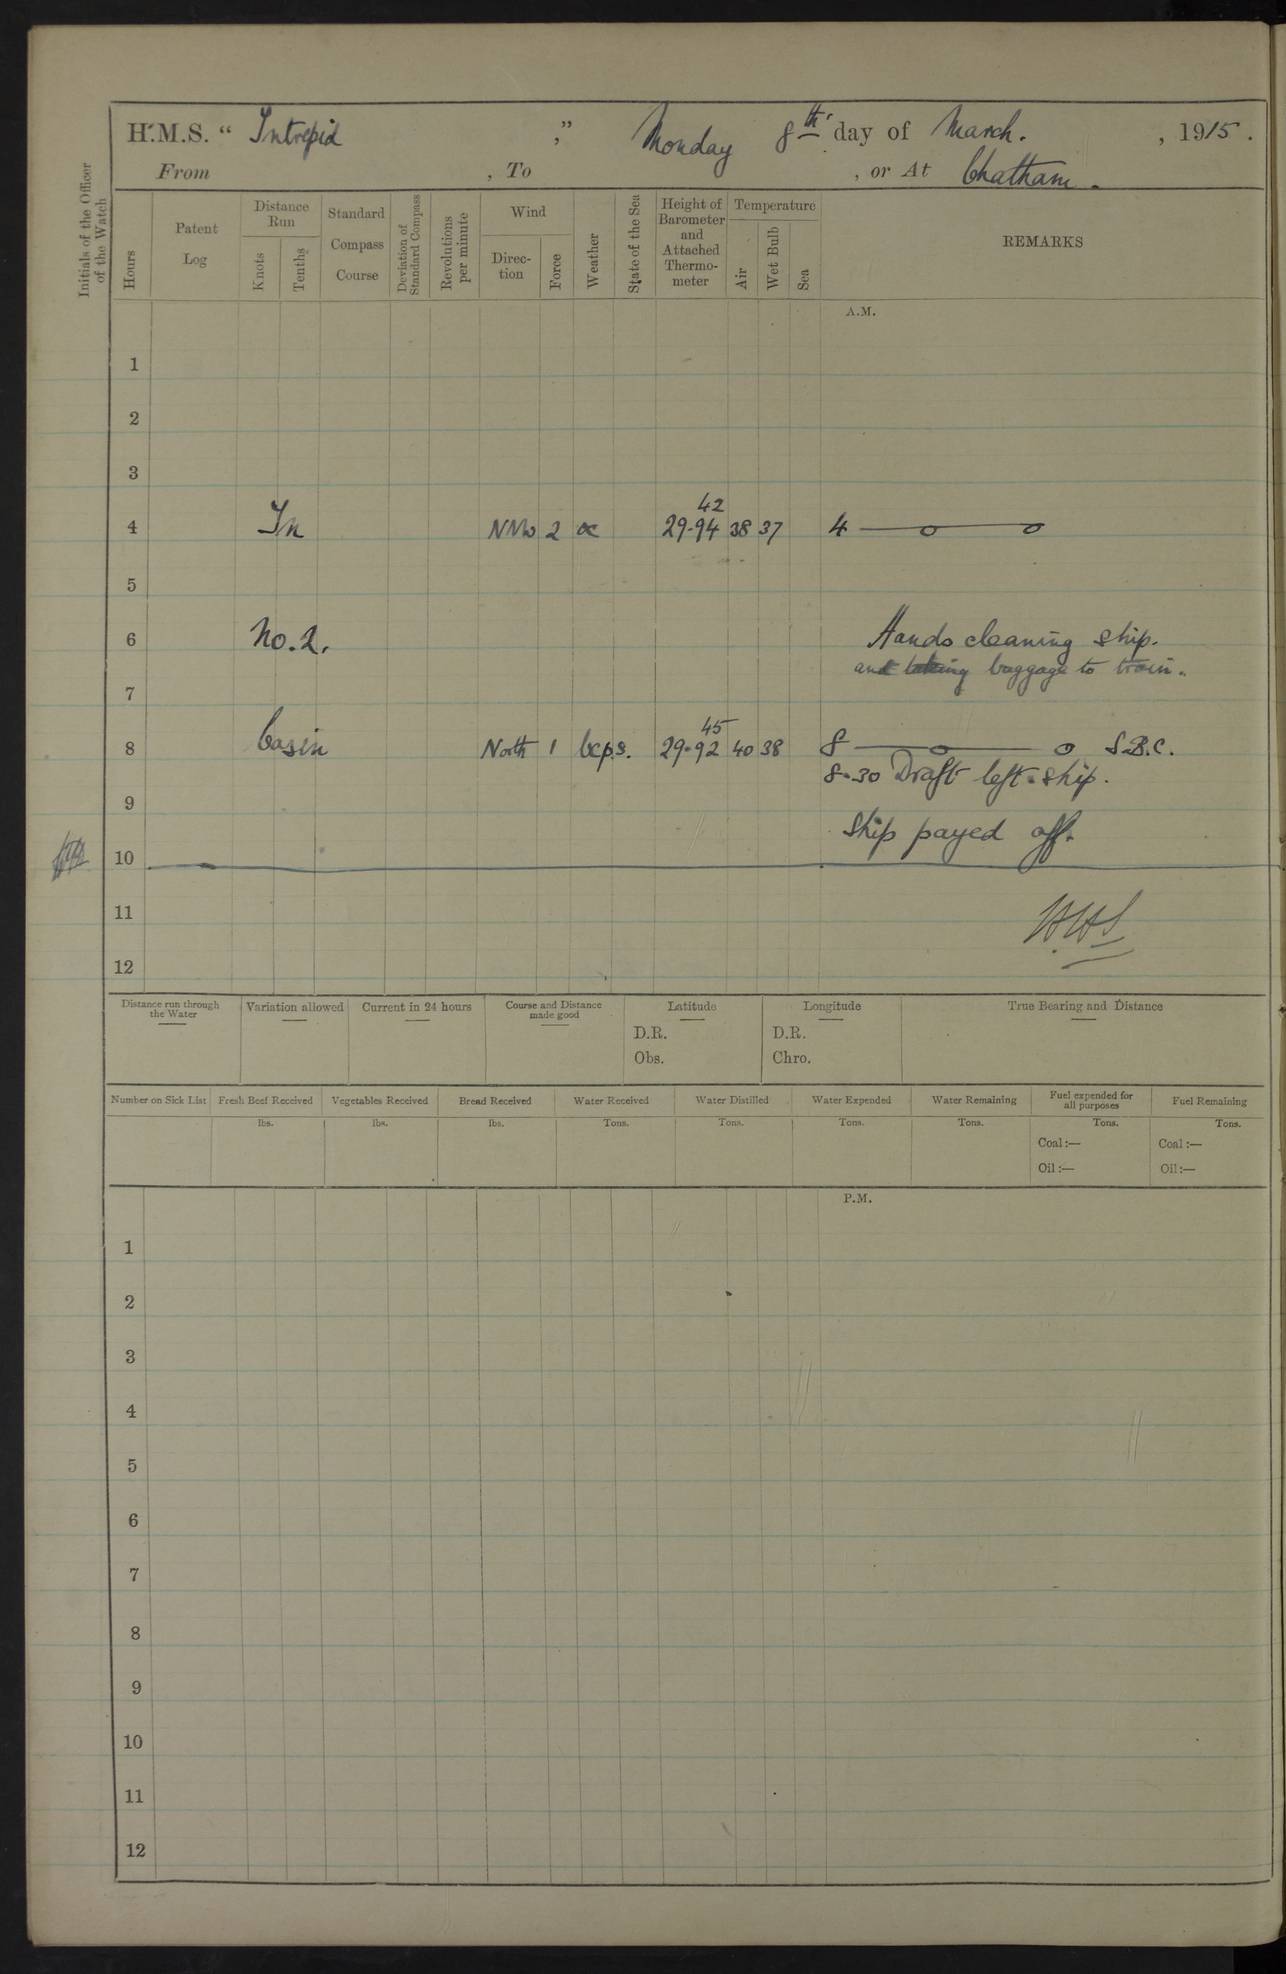 H.M.S. “ Intrepid ,” Monday 8th day of March. , 1915.
From , To , or At Chatham.
Initials of the Officer of the Watch
Hours
Patent Log
Distance Run
Knots
Tenths
Standard Compass Course
Deviation of Standard Compass
Revolutions per minute
Wind
Direction
Force
Weather
State of the Sea
Height of Barometer and Attached Thermometer
Temperature
Air
Wet Bulb
Sea
REMARKS
A.M.
1
2
3
42
4 In NNW 2 oc 29.94 38 37 4 — o — o
5
6 No. 2. Hands cleaning ship.
and taking baggage to train.
7
45
8 basin North 1 bcp.s. 29.92 40 38 8 — o — o S.B.C.
8.30 Draft left ship.
9
Ship payed off.
10
11
12
Distance run through the Water
Variation allowed
Current in 24 hours
Course and Distance made good
Latitude
Longitude
True Bearing and Distance
D.R. D.R.
Obs. Chro.
Number on Sick List
Fresh Beef Received
Vegetables Received
Bread Received
Water Received
Water Distilled
Water Expended
Water Remaining
Fuel expended for all purposes
Fuel Remaining
lbs. lbs. lbs. Tons. Tons. Tons. Tons. Tons. Tons.
Coal :— Coal :—
Oil :— Oil :—
P.M.
1
2
3
4
5
6
7
8
9
10
11
12